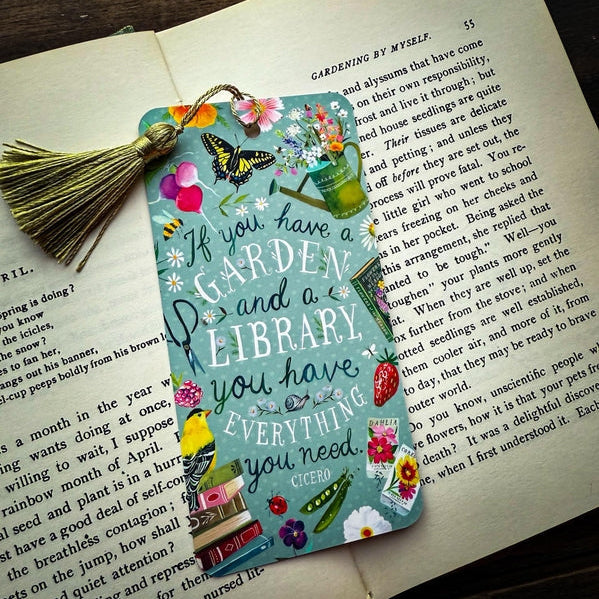 RIL.
spring is doing?
you know
the icicles,
the snow?
es to fan her,
angs out his banner,
l-upp peeps boldly from his brown
is a month in the year w
ng wants doing at once,
railing to wait, I suppose
rainbow month of April.
al seed and plant is in a hurr
st have a good deal of self-con
the breathless contagion;
ets on the jump, how shall
nd quiet attention?
ing and repress
nursed lit-
If you have a
GARDEN
and a
LIBRARY,
you have
EVERYTHING
you need.
CICERO
DAHLIA
GARDENING BY MYSELF.
55
and alyssums that have come
on their own responsibility,
rost and live it through; but
ned house seedlings are quite
Their tissues are delicate
and petting; and unless they
off before they are set out, the
process will prove fatal. You re-
e little girl who went to school
ears freezing on her cheeks and
in her pocket. Being asked the
this arrangement, she replied that
anted to be tough." Well—you
oughen" your plants more gently
When they are well up, set the
ox further from the stove; and when
otted seedlings are well established,
them cooler air, and more of it, from
to day, that they may be ready to brave
outer world.
o you know, unscientific people w
e flowers, how it is that your pets fre
death? It was a delightful discover
ne, when I first understood it. Each